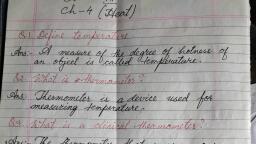 Ch-4 (Heat)
Q.1. Define temperature
Ans:- A measure of the degree of hotness of
an object is called temperature.
Q2. What is a thermometer?
Ans. Thermometer is a device used for
measuring temperature.
Q3. What is a clinical thermometer?
Ans:- The